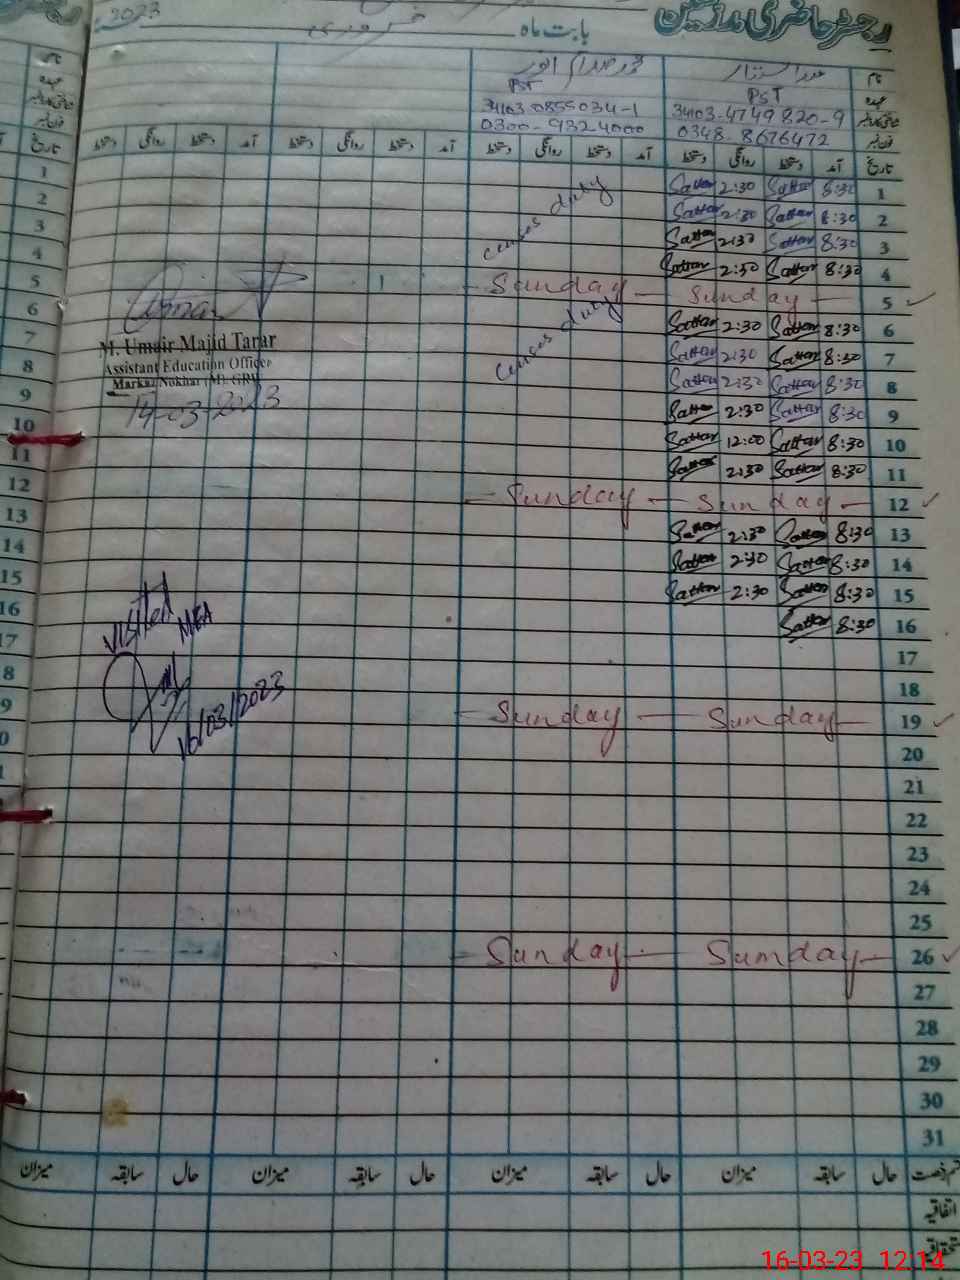 رجسٹر حاضری مدرسین
بابت ماہ 2023
نام عبدالستار
عہدہ PST PST
34103-4749820-9 34103-0855034-1
0348-8676472 0300-9324000
تاریخ آمد دستخط روانگی دستخط آمد دستخط روانگی دستخط آمد دستخط روانگی دستخط آمد دستخط روانگی دستخط
1 8:30 Sattar 2:30 Sattar
2 8:30 Sattar 2:30 Sattar
census duty
3 8:30 Sattar 2:30 Sattar
4 8:30 Sattar 2:30 Sattar
5 Sunday Sunday
6 8:30 Sattar 2:30 Sattar
census duty
7 8:30 Sattar 2:30 Sattar
8 8:30 Sattar 2:30 Sattar
9 8:30 Sattar 2:30 Sattar
10 8:30 Sattar 12:00 Sattar
11 8:30 Sattar 2:30 Sattar
12 Sunday Sunday
13 8:30 Sattar 2:30 Sattar
14 8:30 Sattar 2:30 Sattar
15 8:30 Sattar 2:30 Sattar
16 8:30 Sattar
17
18
19 Sunday Sunday
20
21
22
23
24
25
26 Sunday Sunday
27
28
29
30
31
M. Umair Majid Tarar
Assistant Education Officer
Markaz Nokhar (M). GRW
14-03-2023
visited
MEA
16/03/2023
حال سابقہ میزان حال سابقہ میزان حال سابقہ میزان حال سابقہ میزان
اتفاقیہ
16-03-23 12:14